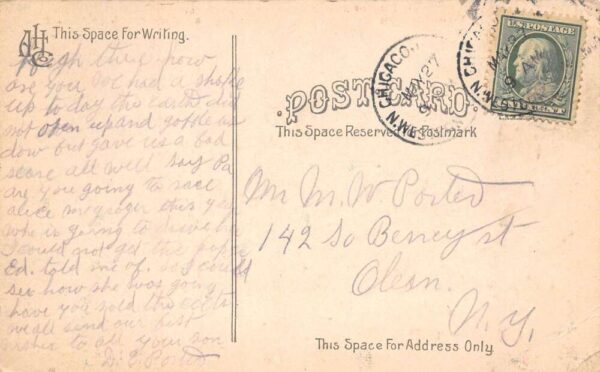 AHC
This Space for Writing.
three how
are you we had a shake
up to day this earth did
not open up and gobble us
down but gave us a bad
scare all well say Pa
are you going to race
alice mcgregor this year
who is going to drive her
I could not get the paper
Ed. told me of. so I could
see how she was going
have you sold the colts
we all send our best
wishes to all your son
D. E. Porter
POST CARD
This Space Reserved for Postmark
CHICAGO
MAY 27
N.WEST
U.S. POSTAGE
CHICAGO
MAY 27
9 AM
N.WEST
Mr M. W. Porter
142 So Barry st
Olean.
N.Y.
This Space For Address Only